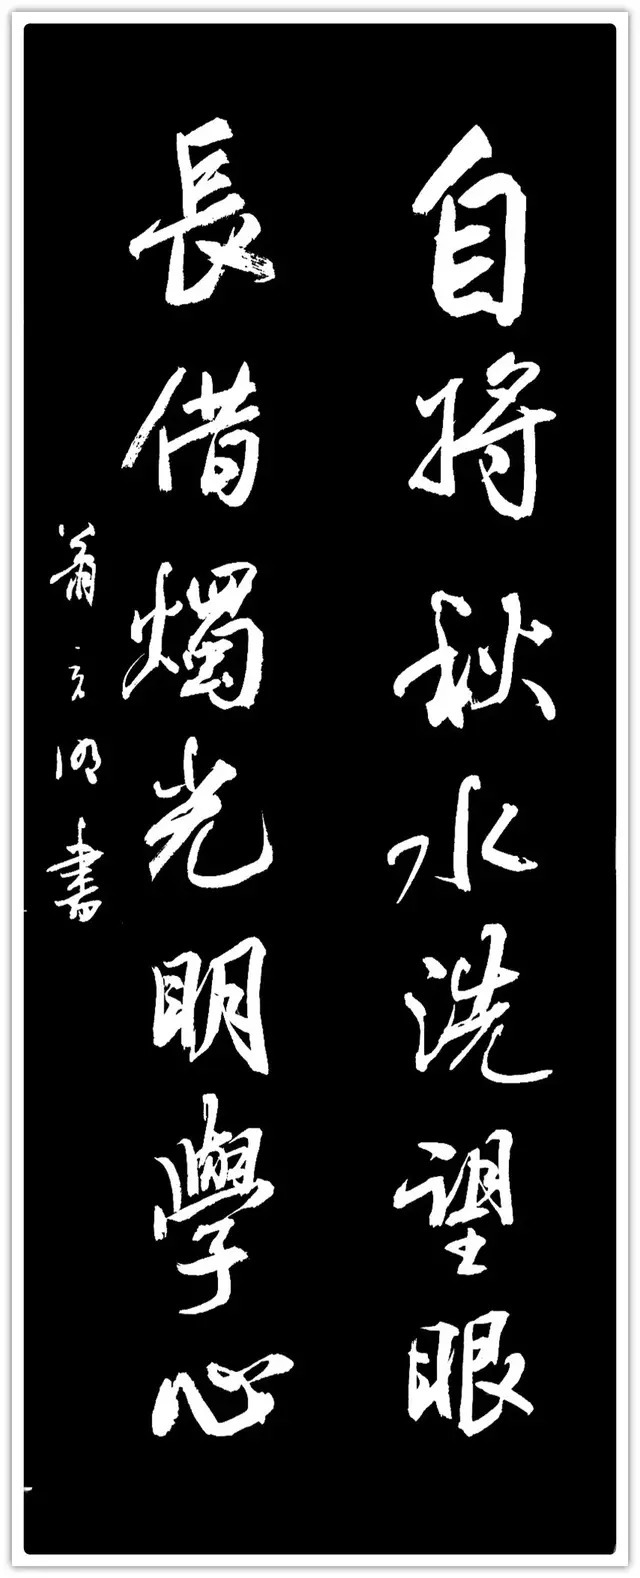 自將秋水洗望眼
長借燭光明學心
蕭玄明書